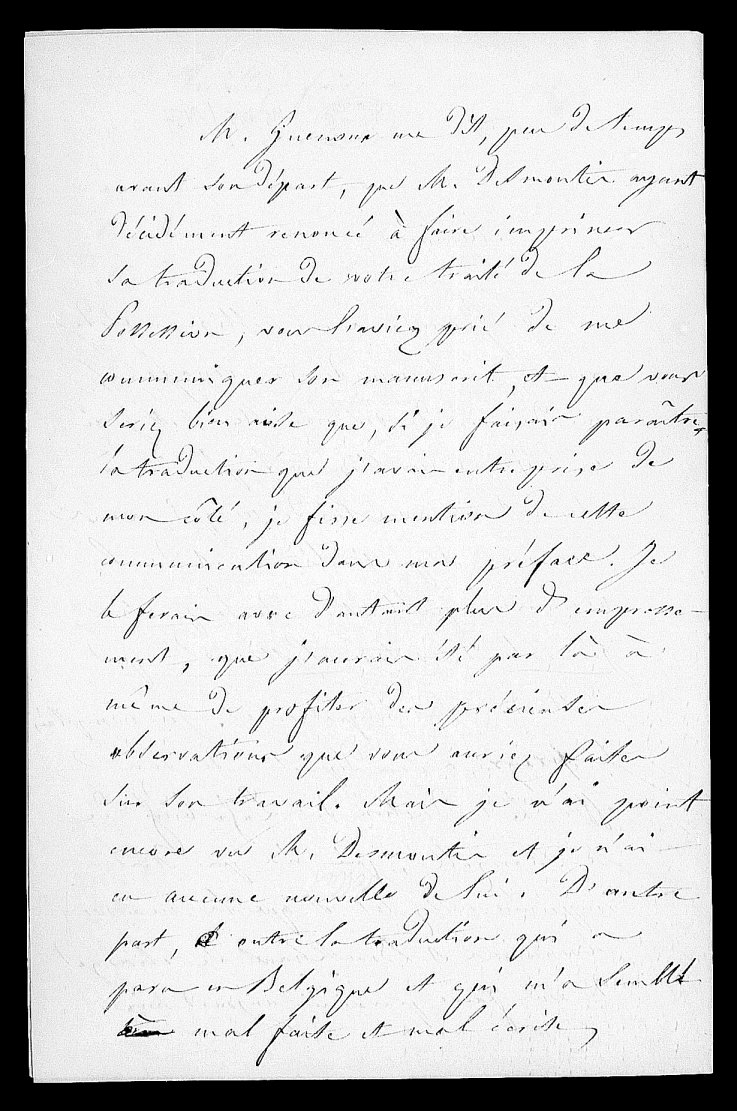 M. Guenoux me dit, peu de temps
avant son départ, que M. Desmontis ayant
décidément renoncé à faire imprimer
sa traduction de votre traité de la
Possession, vous l'aviez prié de me
communiquer son manuscrit, et que vous
seriez bien aise que, si je faisais paraître
la traduction que j'avais entreprise de
mon côté, je fisse mention de cette
communication dans ma préface. Je
le ferais avec d'autant plus d'empresse-
ment, que j'aurais été par là à
même de profiter des précieuses
observations que vous auriez faites
sur son travail. Mais je n'ai point
encore vu M. Desmontis et je n'ai
eu aucune nouvelle de lui. D'autre
part, outre la traduction qui a
paru en Belgique et qui m'a semblé
mal faite et mal écrite,